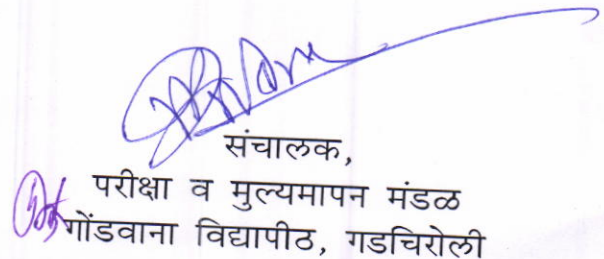 संचालक,
परीक्षा व मुल्यमापन मंडळ
गोंडवाना विद्यापीठ, गडचिरोली